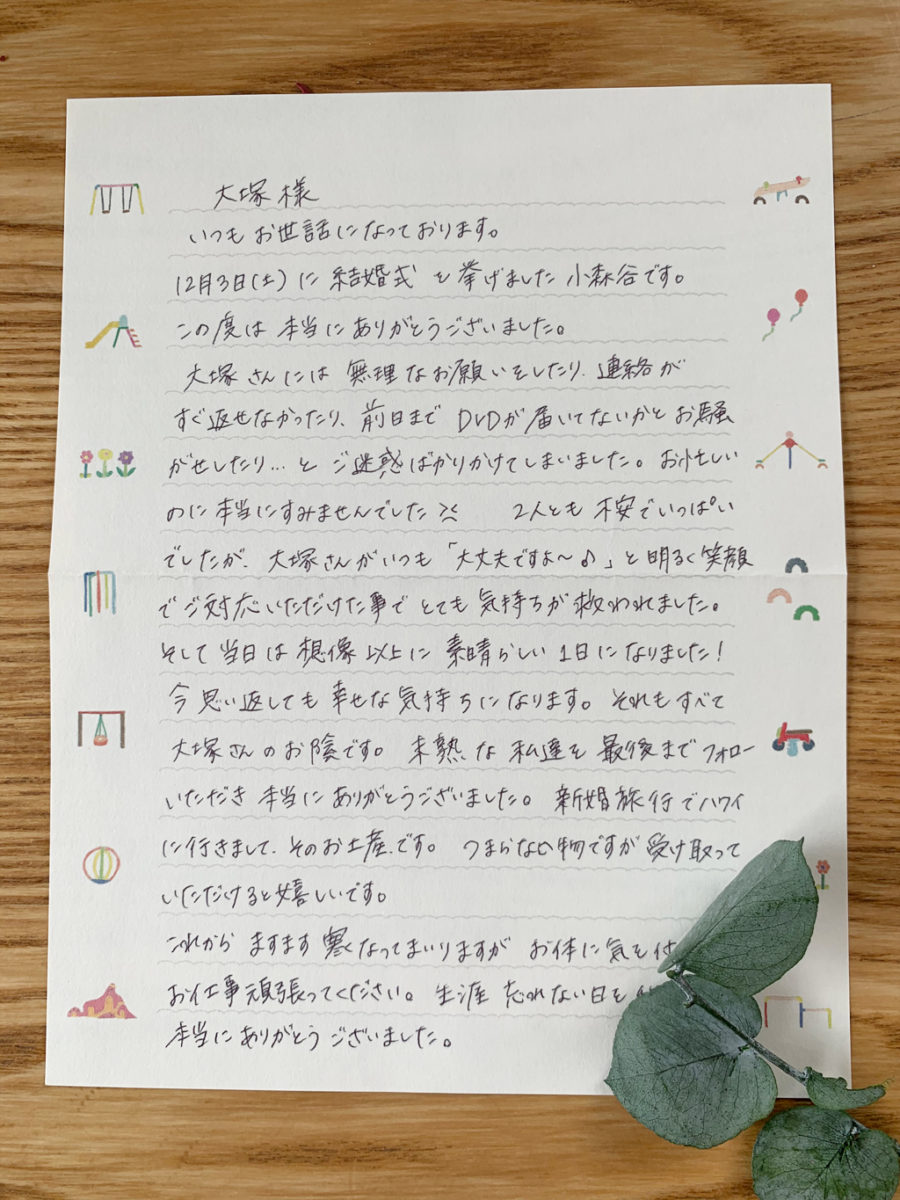 大塚様
いつもお世話になっております。
12月3日(土)に結婚式を挙げました小森谷です。
この度は本当にありがとうございました。
大塚さんには無理なお願いをしたり、連絡が
すぐ返せなかったり、前日までDVDが届いてないかとお騒
がせしたり…とご迷惑ばかりかけてしまいました。お忙しい
のに本当にすみませんでした 2人とも不安でいっぱい
でしたが、大塚さんがいつも「大丈夫ですよ〜♪」と明るく笑顔
でご対応いただけた事でとても気持ちが救われました。
そして当日は想像以上に素晴らしい1日になりました!
今思い返しても幸せな気持ちになります。それもすべて
大塚さんのお陰です。未熟な私達を最後までフォロー
いただき本当にありがとうございました。新婚旅行でハワイ
に行きまして、そのお土産です。つまらない物ですが受け取って
いただけると嬉しいです。
これからますます寒くなってまいりますがお体に気を付
お仕事頑張ってください。生涯忘れない日を
本当にありがとうございました。